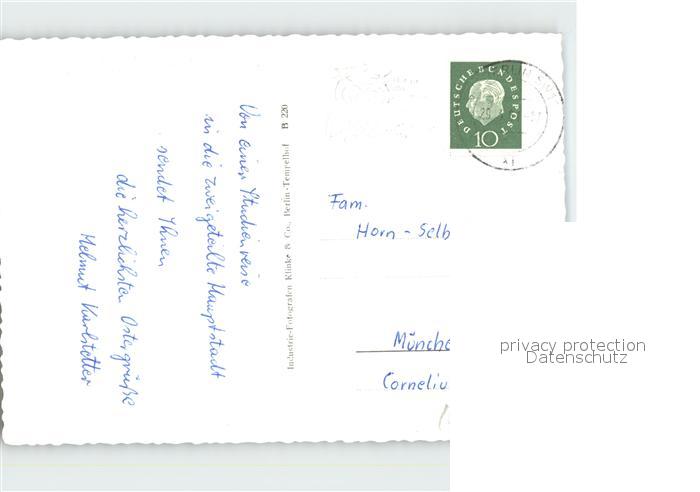 Von einer Studienreise
in die zweigeteilte Hauptstadt
sendet Ihnen
die herzlichsten Ostergrüße
Helmut Karlstetter
Industrie-Fotografen Klinke & Co., Berlin-Tempelhof B 220
DEUTSCHE BUNDESPOST
10
Fam.
Horn - Selb
Münche
Corneliu
privacy protection
Datenschutz